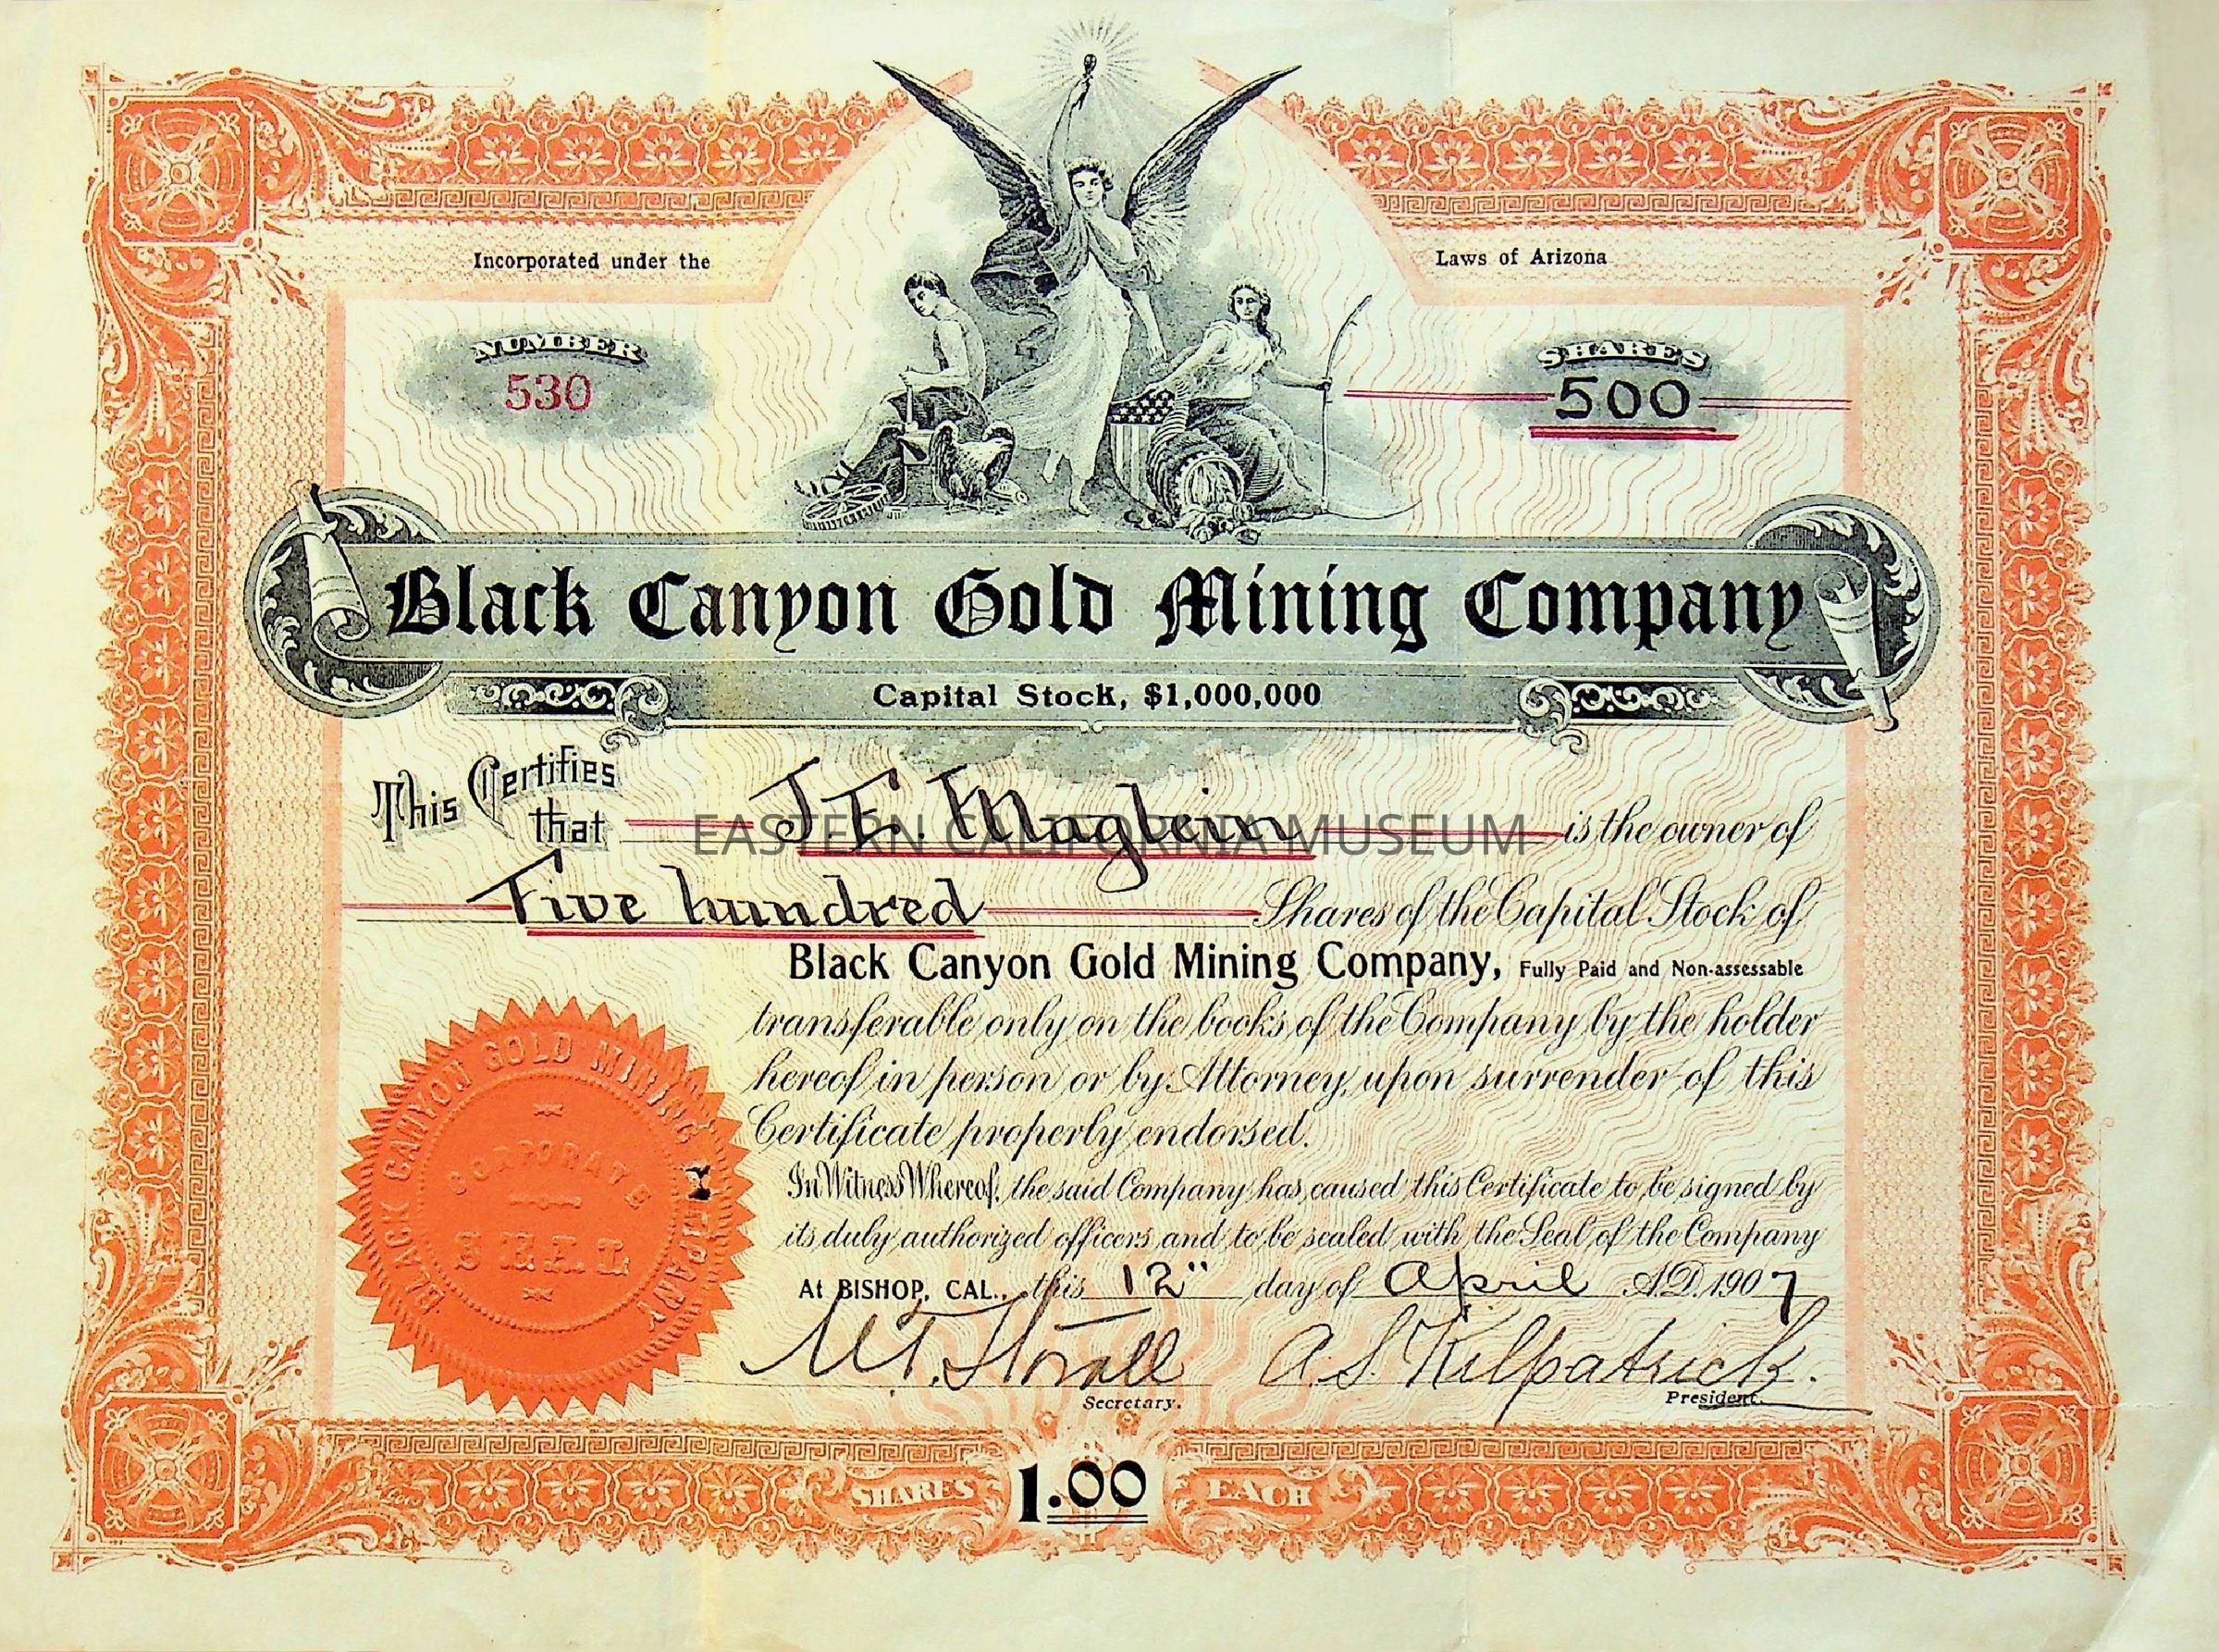 Incorporated under the Laws of Arizona
NUMBER
530
SHARES
500
Black Canyon Gold Mining Company
Capital Stock, $1,000,000
This Certifies
that J. E. Maglein is the owner of
EASTERN CALIFORNIA MUSEUM
Five hundred Shares of the Capital Stock of
Black Canyon Gold Mining Company, Fully Paid and Non-assessable
transferable only on the books of the Company by the holder
hereof in person or by Attorney, upon surrender of this
Certificate properly endorsed.
In Witness Whereof, the said Company has caused this Certificate to be signed by
its duly authorized officers and to be sealed with the Seal of the Company
At BISHOP, CAL., this 12" day of April A.D. 1907
A. S. Kilpatrick.
Secretary.
President.
BLACK CANYON GOLD MINING COMPANY
CORPORATE
SEAL
SHARES 1.00 EACH